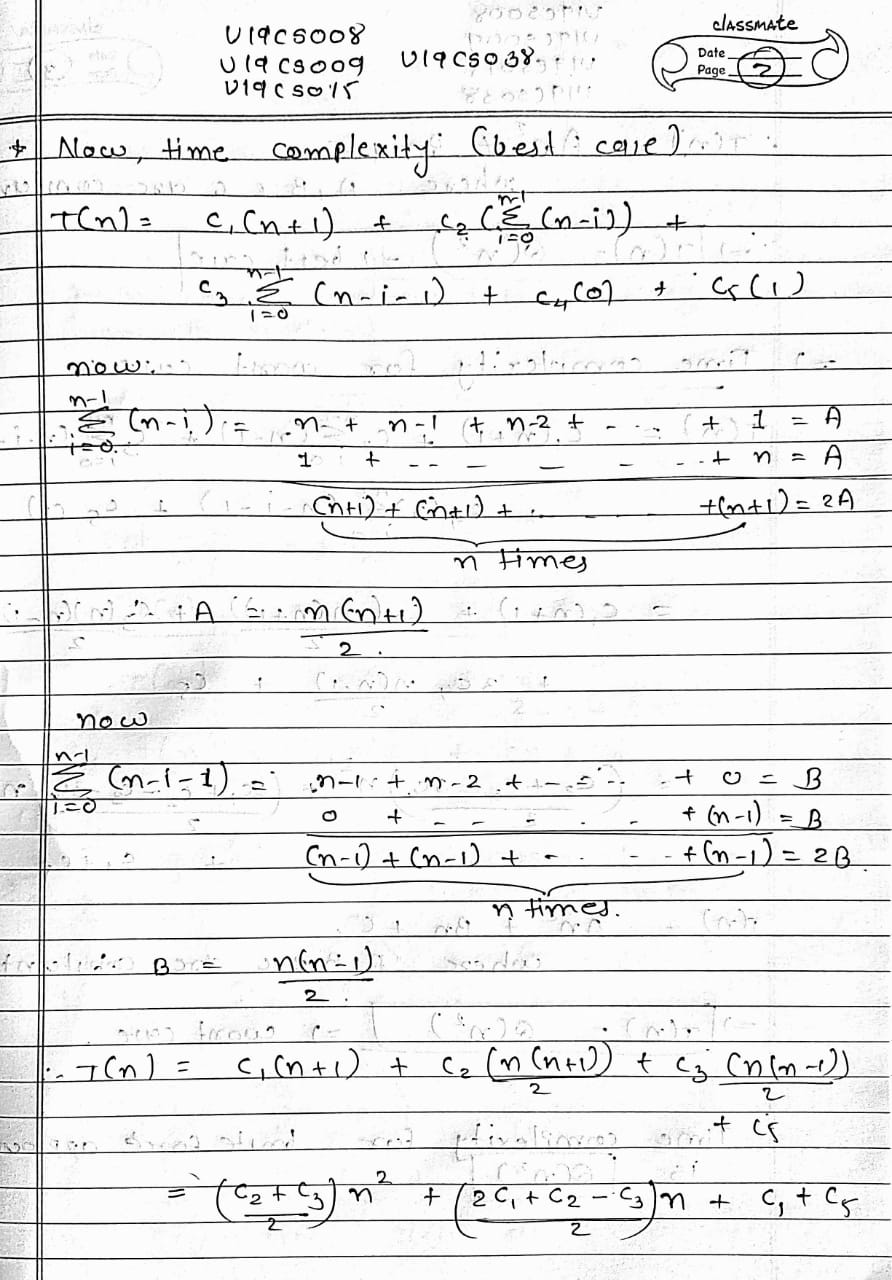 U19CS008
U19CS009 U19CS038
U19CS015
classmate
Date
Page 2
* Now, time complexity: (best case)
T(n) = c₁(n+1) + c₂(Σ_{i=0}^{n-1}(n-i)) +
c₃ Σ_{i=0}^{n-1} (n-i-1) + c₄(0) + c₅(1)
now:
Σ_{i=0}^{n-1} (n-i) = n + n-1 + n-2 + - - - + 1 = A
1 + - - - - - - - + n = A
(n+1) + (n+1) + . . . +(n+1) = 2A
n times
∴ A = n(n+1)/2.
now
Σ_{i=0}^{n-1} (n-i-1) = n-1 + n-2 + - - - + 0 = B
0 + - - - - - + (n-1) = B
(n-1) + (n-1) + - - - - +(n-1) = 2B
n times.
∴ B = n(n-1)/2.
∴ T(n) = c₁(n+1) + c₂(n(n+1))/2 + c₃(n(n-1))/2
+ c₅
= ((c₂+c₃)/2)n² + ((2c₁+c₂-c₃)/2)n + c₁+c₅